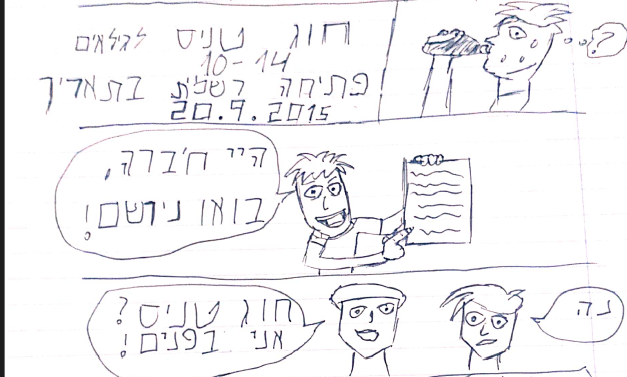 ?
חוג טניס לגלאים
10-14
פתיחה רשמית בתאריך
20.9.2015
היי ח'ברה,
בואו נירשם!
נה
חוג טניס?
אני בפנים!